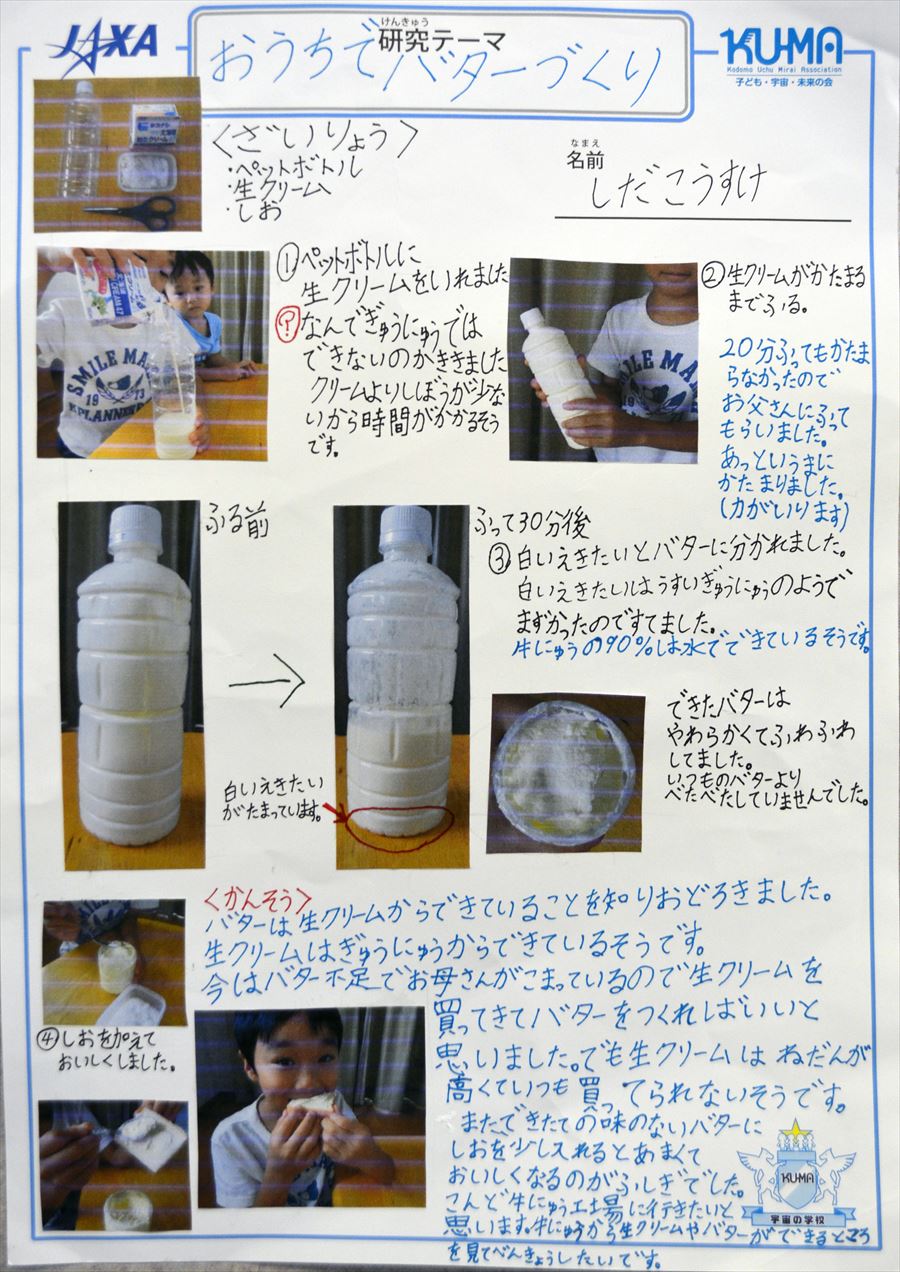 JAXA
けんきゅう
研究テーマ
おうちでバターづくり
KU-MA
Kodomo Uchu Mirai Association
子ども・宇宙・未来の会
〈ざいりょう〉
・ペットボトル
・生クリーム
・しお
なまえ
名前
しだこうすけ
①ペットボトルに
生クリームをいれました
?なんでぎゅうにゅうでは
できないのかききました
クリームよりしぼうが少な
いから時間がかかるそう
です。
SMILE MA
1973
②生クリームがかたまる
までふる。
20分ふってもかたま
らなかったので
お父さんにふって
もらいました。
あっというまに
かたまりました。
(力がいります)
SMILE MA
ふる前
ふって30分後
③白いえきたいとバターに分かれました。
白いえきたいはうすいぎゅうにゅうのようで
まずかったのですてました。
牛にゅうの90%は水でできているそうです。
白いえきたい
がたまっています。
できたバターは
やわらかくてふわふわ
してました。
いつものバターより
べたべたしていませんでした。
〈かんそう〉
バターは生クリームからできていることを知りおどろきました。
生クリームはぎゅうにゅうからできているそうです。
今はバター不足でお母さんがこまっているので生クリームを
買ってきてバターをつくればいいと
思いました。でも生クリームはねだんが
高くていつも買ってられないそうです。
またできたての味のないバターに
しおを少し入れるとあまくて
おいしくなるのがふしぎでした。
こんど牛にゅう工場に行きたいと
思います。牛にゅうから生クリームやバターができるところ
を見てべんきょうしたいです。
④しおを加えて
おいしくしました。
KU-MA
宇宙の学校